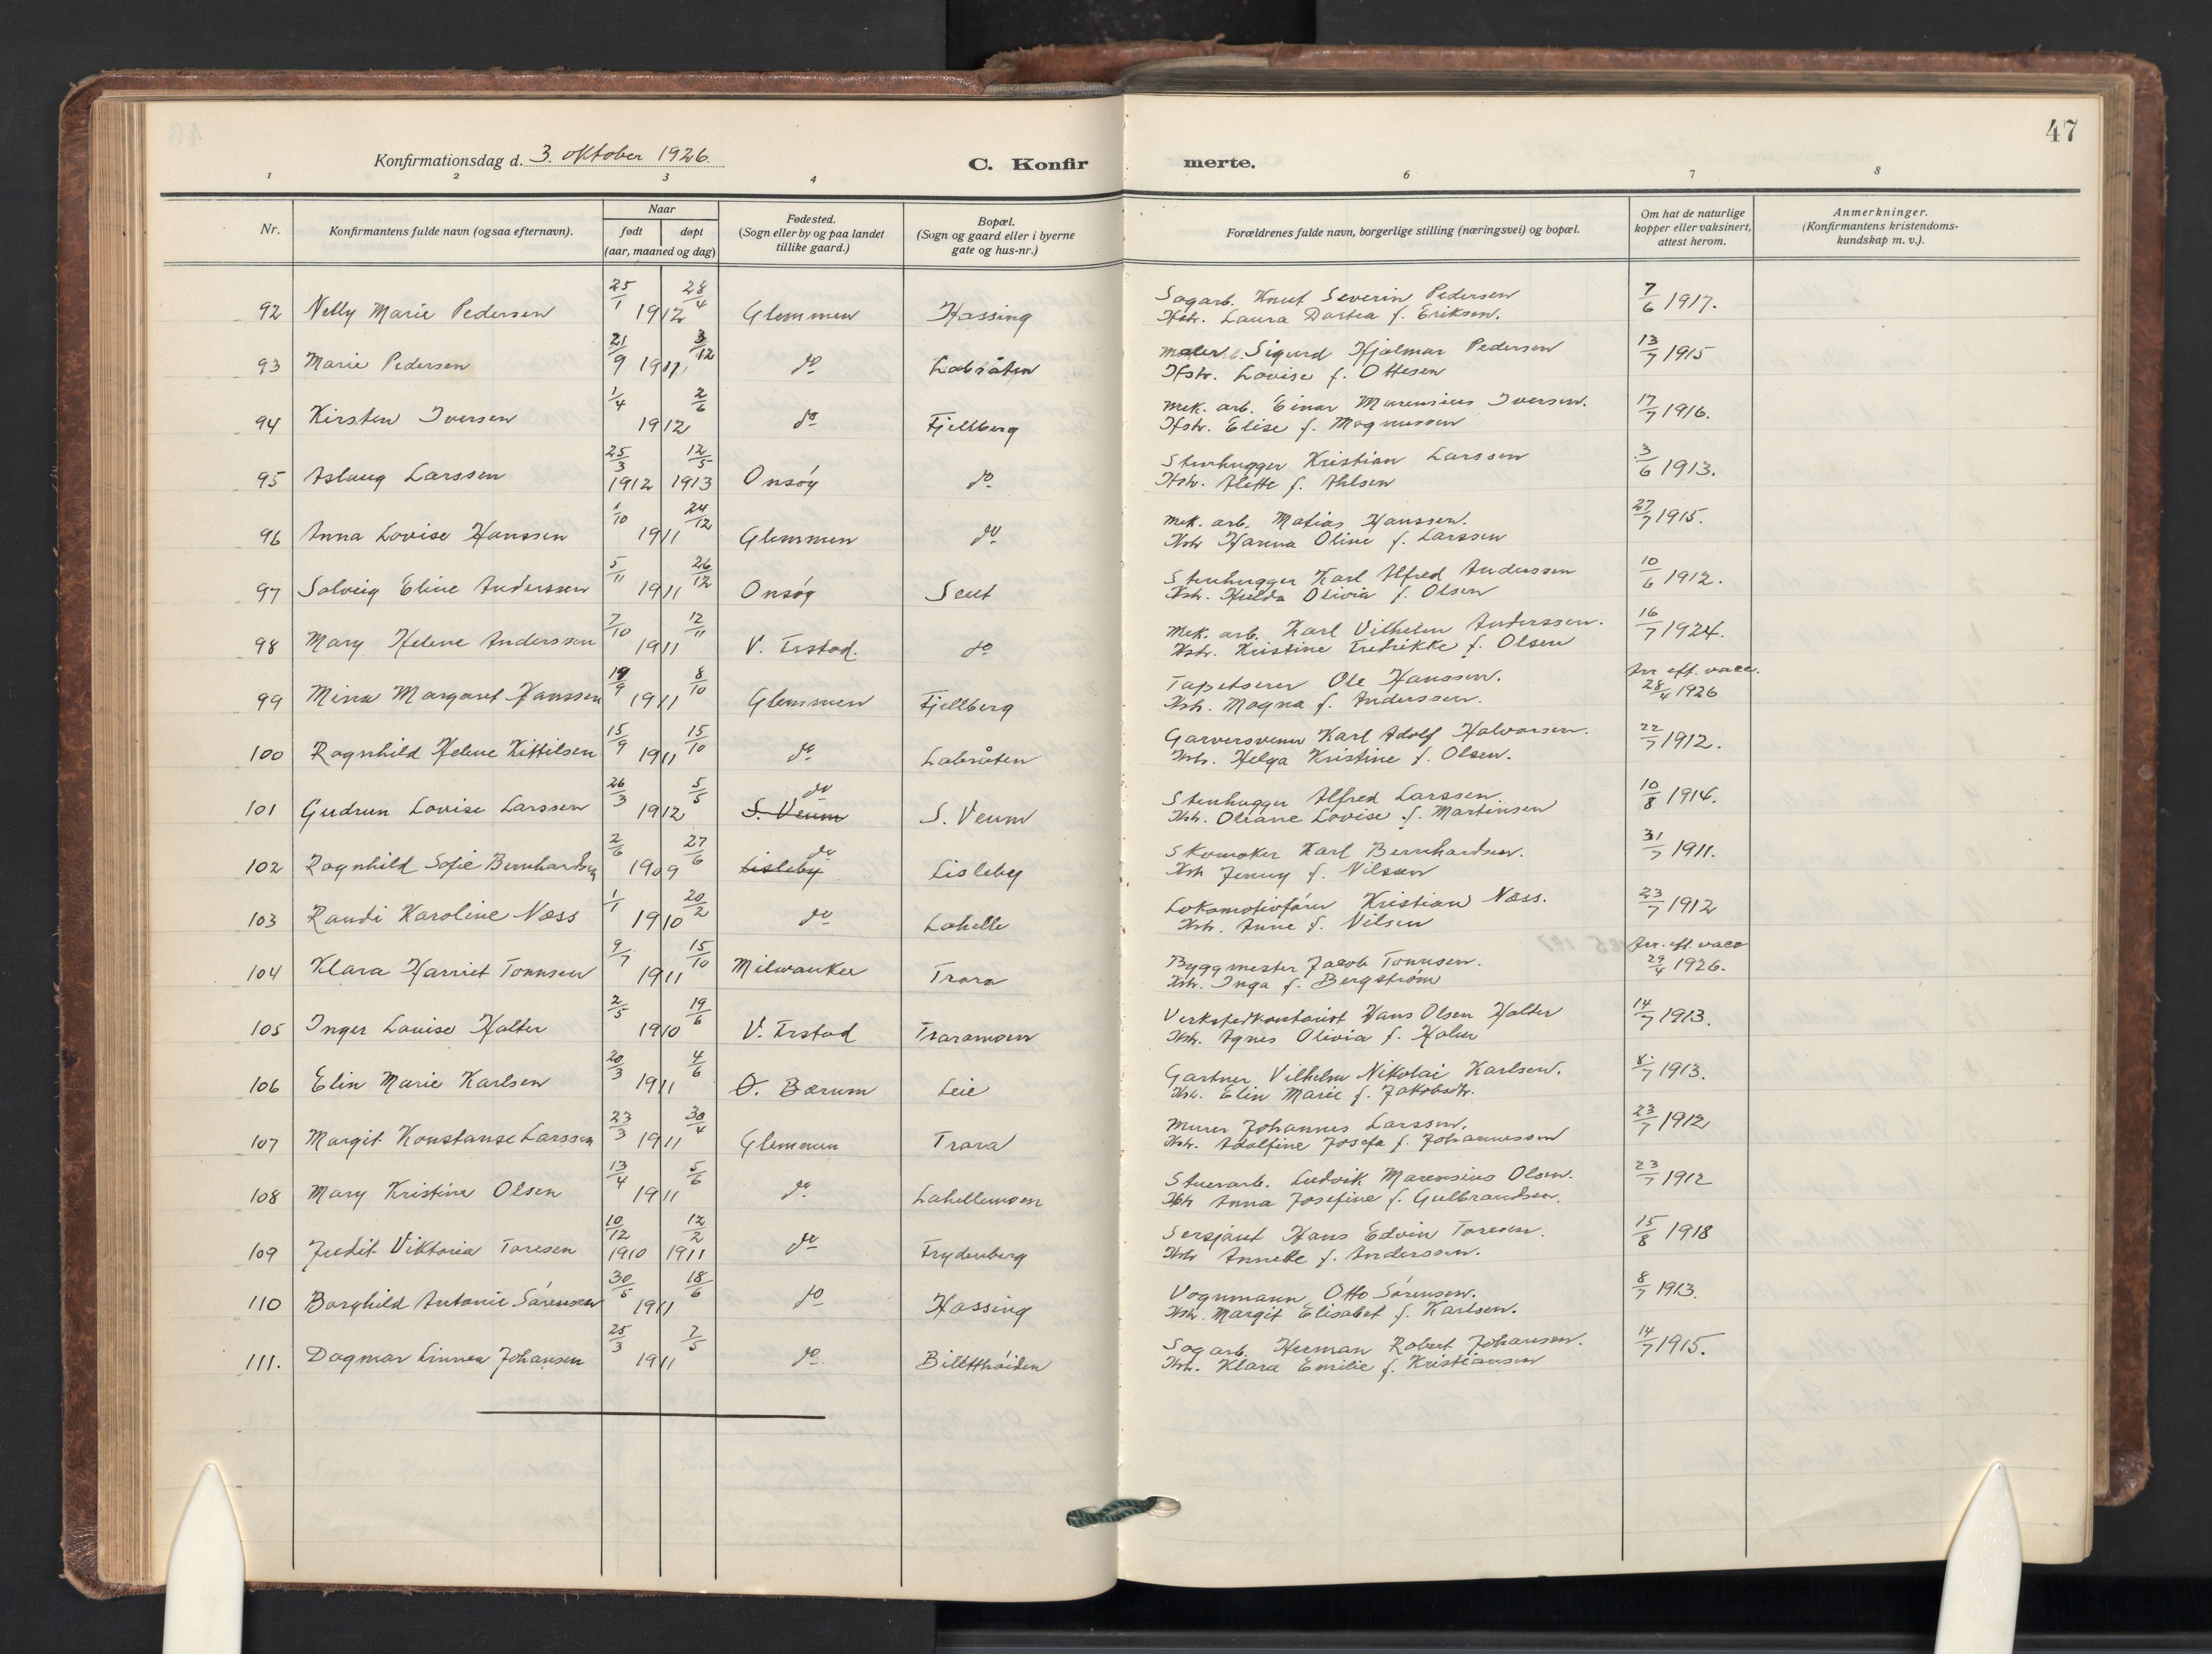 47
Konfirmationsdag d. 3. oktober 1926.
C. Konfir merte.
1 2 3 4 6 7 8
Nr.
Konfirmantens fulde navn (ogsaa efternavn).
Naar
født døpt
(aar, maaned og dag)
Fødested.
(Sogn eller by og paa landet
tillike gaard.)
Bopæl.
(Sogn og gaard eller i byerne
gate og hus-nr.)
Forældrenes fulde navn, borgerlige stilling (næringsvei) og bopæl.
Om hat de naturlige
kopper eller vaksinert,
attest herom.
Anmerkninger.
(Konfirmantens kristendoms-
kundskap m. v.).
92 Nelly Marie Pedersen 25/1 1912 28/4 Glemmen Hassing
Sagarb. Knut Severin Pedersen 7/6 1917.
Hstr. Laura Dortea f. Eriksen.
93 Marie Pedersen 21/9 1911 3/12 do Labråten
Maler Sigurd Hjalmar Pedersen 13/7 1915
Hstr. Lovise f. Ottesen
94 Kirsten Iversen 1/4 1912 2/6 do Fjellberg
Mek. arb. Einar Marensius Iversen. 17/7 1916.
Hstr. Elise f. Magnussen
95 Aslaug Larssen 25/3 1912 12/5 1913 Onsøy do
Stenhugger Kristian Larssen 3/6 1913.
Hstr. Alette f. Ahlsen
96 Anna Lovise Hanssen 1/10 1911 24/12 Glemmen do
Mek. arb. Matias Hanssen. 27/7 1915.
Hstr Hanna Oline f. Larssen
97 Solveig Eline Anderssen 5/11 1911 26/12 Onsøy Seut
Stenhugger Karl Alfred Anderssen 10/6 1912.
Hstr. Hulda Olivia f. Olsen
98 Mary Helene Anderssen 7/10 1911 12/11 V. Frstad. do
Mek. arb. Karl Vilhelm Anderssen. 16/7 1924.
Hstr. Kristine Fredrikke f. Olsen
99 Mina Margaret Hanssen 19/9 1911 8/10 Glemmen Fjellberg
Tapetserer Ole Hanssen. Arr eft. vacc.
Hstr. Magna f. Anderssen. 28/4 1926
100 Ragnhild Helene Kittilsen 15/9 1911 15/10 do Labråten
Garversvenn Karl Adolf Halvorsen. 22/7 1912.
Hstr. Helga Kristine f. Olsen.
101 Gudrun Lovise Larssen 26/3 1912 5/5 S. Veum do S. Veum
Stenhugger Alfred Larssen 10/8 1914.
Hstr. Oleane Lovise f. Martinsen
102 Ragnhild Sofie Bernhardsen 2/6 1909 27/6 Lisleby do Lisleby
Skomaker Karl Bernhardsen. 31/7 1911.
Hstr Jenny f. Nilssen
103 Randi Karoline Næss 1/1 1910 20/2 do Lahelle
Lokomotivfører Kristian Næss. 23/7 1912
Hstr. Anne f. Nilsen
104 Klara Harriet Tonnsen 9/7 1911 15/10 Milwaukee Trara
Byggmester Jacob Tonnsen. Arr. eft. vacc
Hstr. Inga f. Bergstrøm 29/4 1926.
105 Inger Lovise Holter 2/5 1910 19/6 V. Frstad Traramoen
Verkstedkontorist Hans Olsen Holter 14/7 1913.
Hstr. Agnes Olivia f. Holm
106 Elin Marie Karlsen 20/3 1911 4/6 Ø. Bærum Leie
Gartner Vilhelm Nikolai Karlsen. 8/7 1913.
Hstr. Elin Marie f. Jakobsdtr.
107 Margit Konstanse Larssen 23/3 1911 30/4 Glemmen Trara
Murer Johannes Larssen. 23/7 1912
Hstr. Adolfine Josefa f. Johannessen
108 Mary Kristine Olsen 13/4 1911 5/6 do Lahellemoen
Stuerarb. Ludvik Marensius Olsen. 23/7 1912
Hstr Anna Josefine f. Gulbrandsen.
109 Judit Viktoria Toresen 10/12 1910 12/2 1911 do Frydenberg
Sersjant Hans Edvin Toresen. 15/8 1918
Hstr Annette f. Anderssen.
110 Borghild Antonie Sørensen 30/5 1911 18/6 do Hassing
Vognmann Otto Sørensen. 8/7 1913.
Hstr. Margit Elisabet f. Karlsen.
111. Dagmar Linnea Johansen 25/3 1911 7/5 do Billtthøiden
Sagarb. Herman Robert Johansen. 14/7 1915.
Hstr. Klara Emilie f. Kristiansen